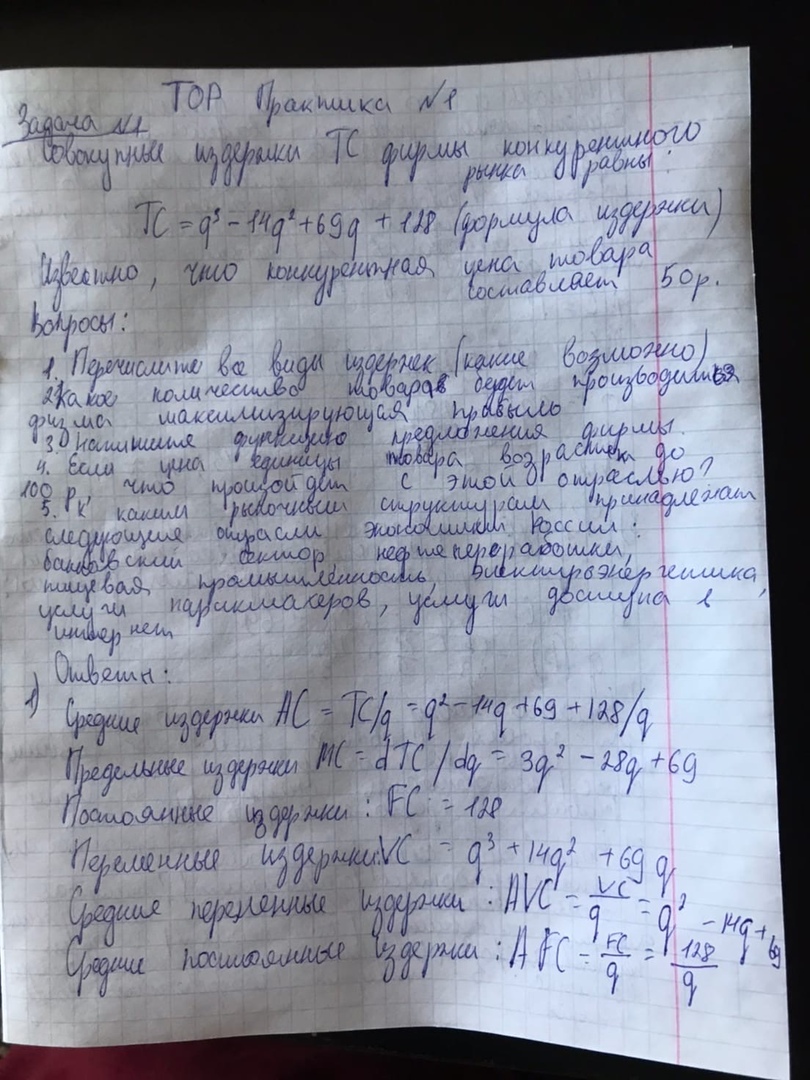 ТОР Практика №1
Задача №1
Совокупные издержки ТС фирмы конкурентного
рынка равны:
TC = q³ - 14q² + 69q + 128 (формула издержки)
Известно, что конкурентная цена товара
составляет 50р.
Вопросы:
1. Перечислите все виды издержек (какие возможно)
2. Какое количество товаров будет производиться
фирма максимизирующая прибыль
3. Напишите функцию предложения фирмы.
4. Если цена единицы товара возрастет до
100 р, что произойдет с этой отраслью?
5. К каким рыночным структурам принадлежат
следующие отрасли экономики России:
банковский сектор нефтепереработки,
пищевая промышленность, электроэнергетика,
услуги парикмахеров, услуги доступа в
интернет
Ответы:
1) Средние издержки AC = TC/q = q² - 14q + 69 + 128/q
Предельные издержки MC = dTC/dq = 3q² - 28q + 69
Постоянные издержки: FC = 128
Переменные издержки: VC = q³ + 14q² + 69q
Средние переменные издержки: AVC = VC/q = q² - 14q + 69
Средние постоянные издержки: AFC = FC/q = 128/q